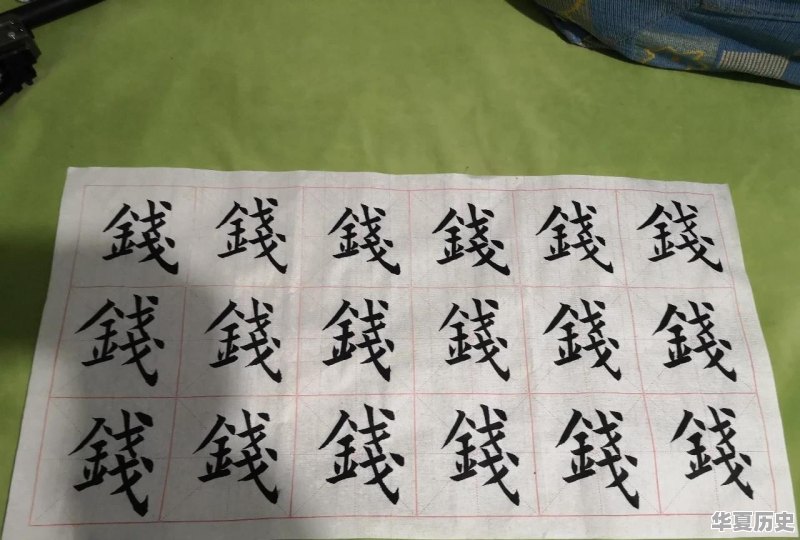 錢錢錢錢錢錢
錢錢錢錢錢錢
錢錢錢錢錢錢
华夏历史